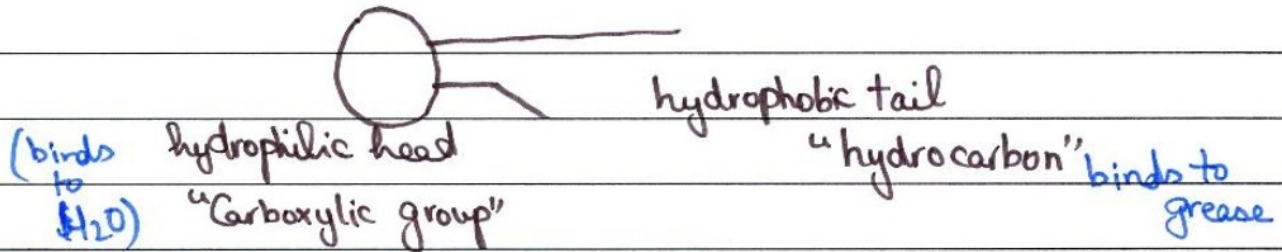 hydrophobic tail
(binds to H₂O) hydrophilic head
"hydrocarbon" binds to grease
"Carboxylic group"